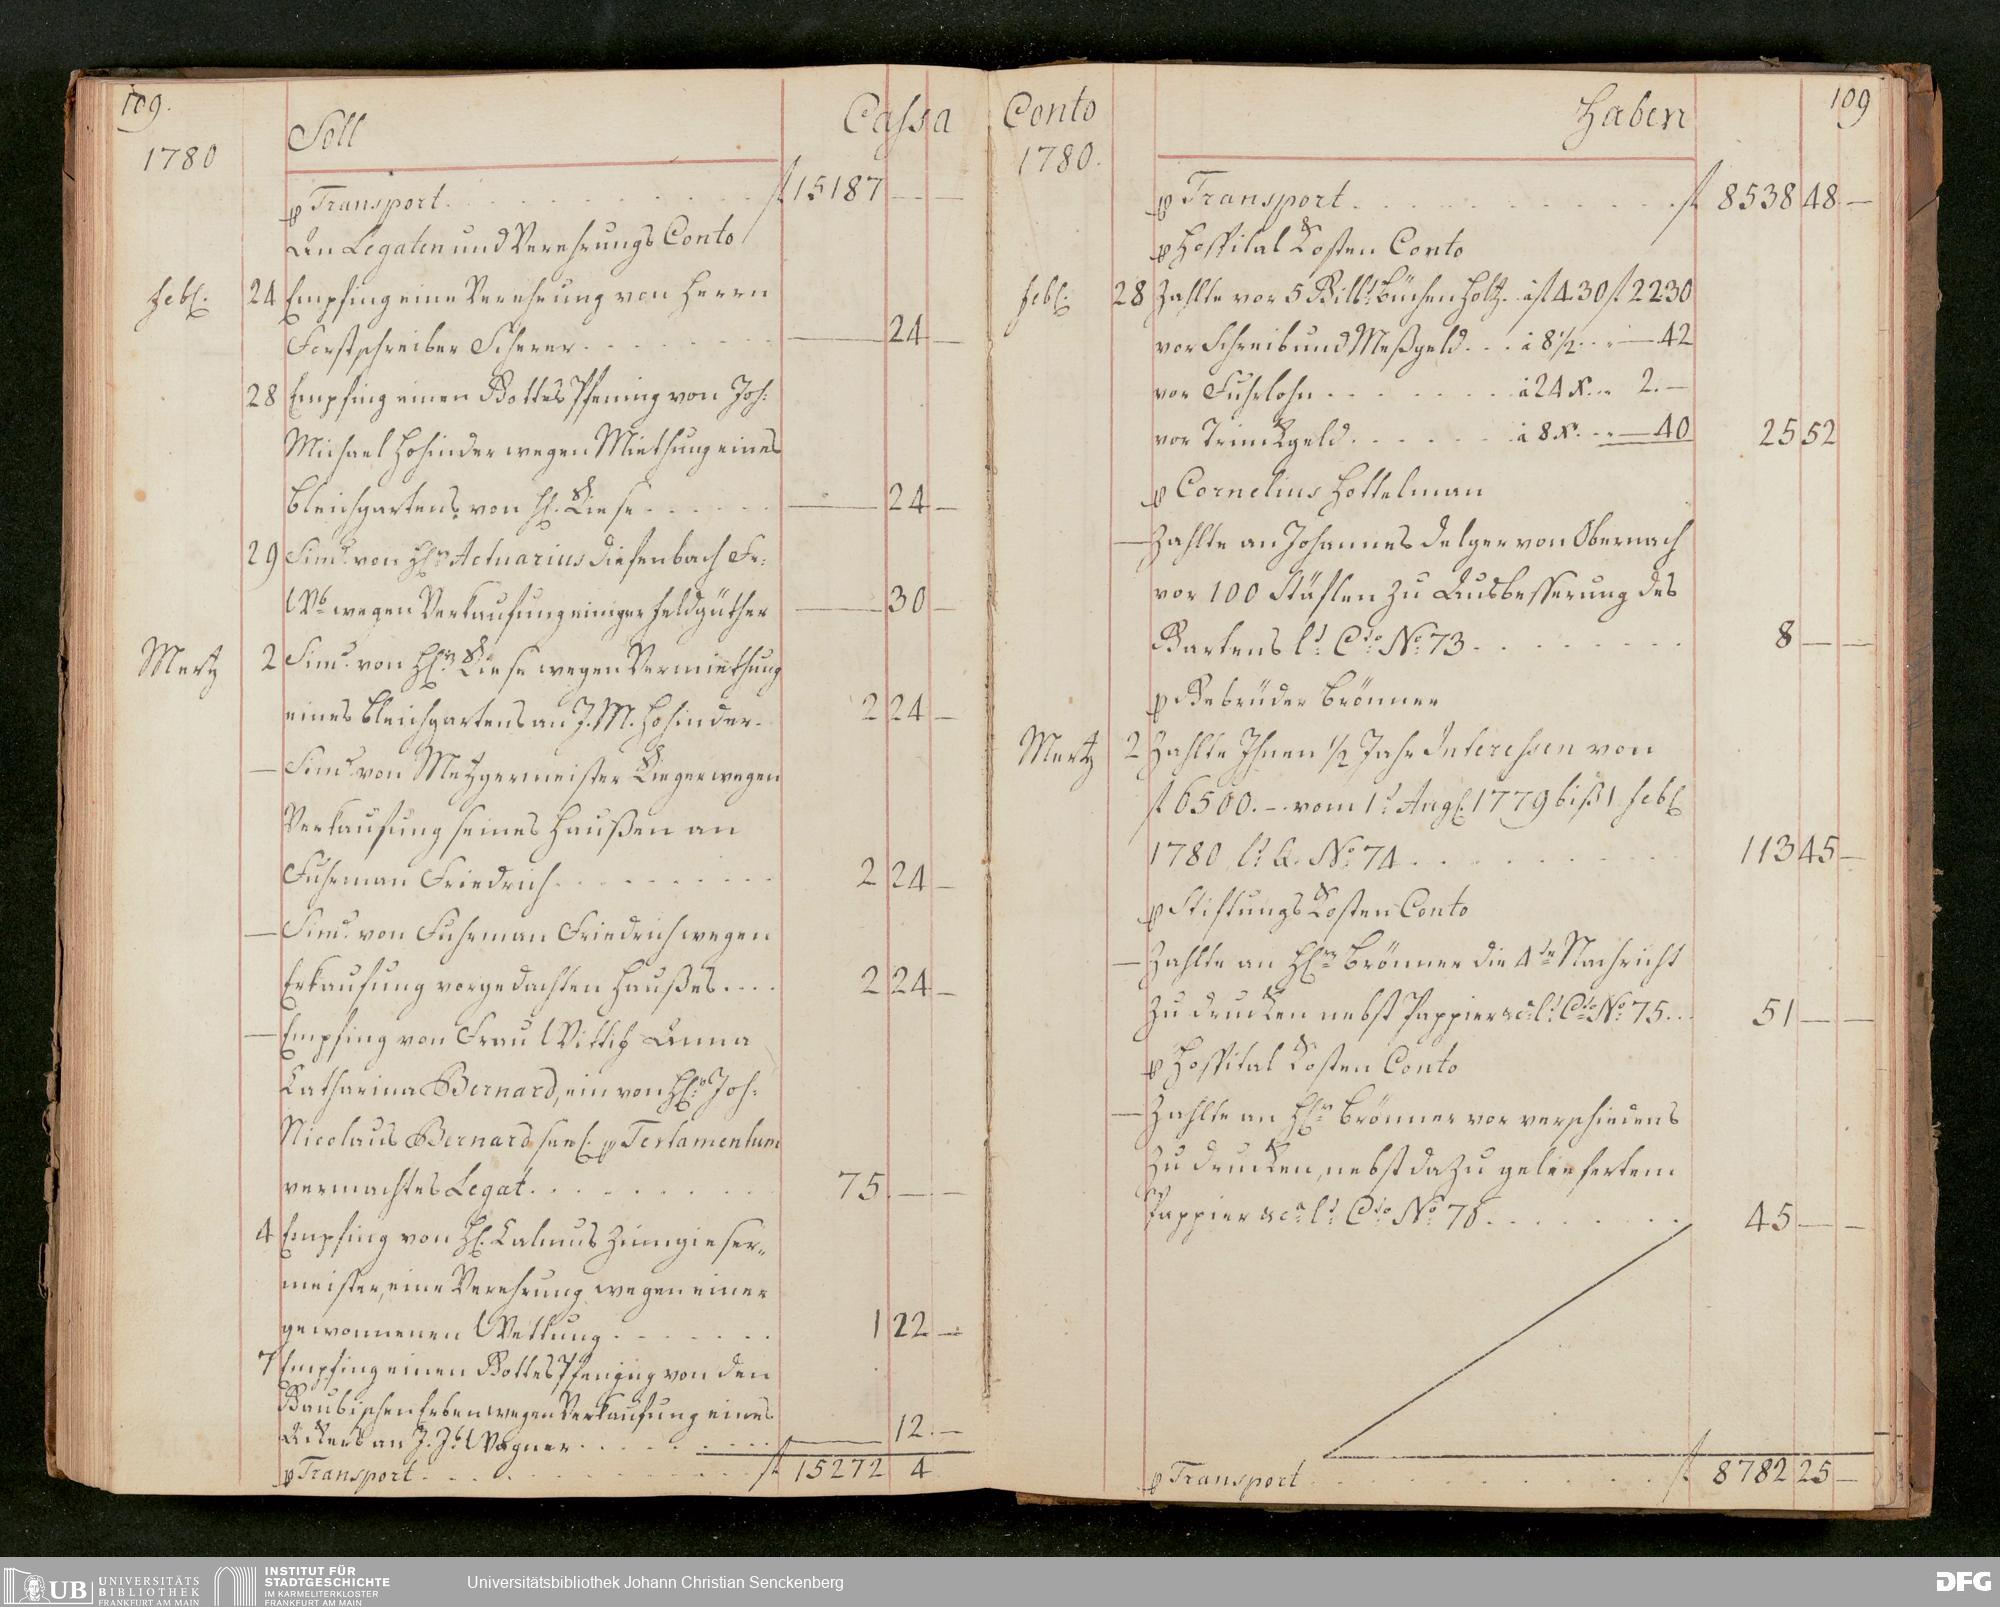 109.
Soll Cassa
1780
p Transport . . . f 15187 — —
An Legaten und Verehrungs Conto
Febl. 24 Empfing eine Verehrung von Herrn
Forstschreiber Scherer . . . — 24 —
28 Empfing einen Gottes Pfening von Joh:
Michael Hohinder wegen Miethung eines
Bleichgartens von Hl. Kiese . . . — 24 —
29 Simd. von Hln Actuarius Diefenbach Fr:
wegen Verkaufung einiger Feldgüther — 30 —
Mertz 2 Simd. von Hln Kiese wegen Vermiethung
eines Bleichgartens an J. M. Hohinder. 2 24 —
— Simd. von Metzgermeister Kieger wegen
Verkaufung seines Haußen an
Fuhrman Friedrich . . . 2 24 —
— Simd. von Fuhrman Friedrich wegen
Erkaufung vorgedachten Haußes . . . 2 24 —
— Empfing von Frau Wittib Anna
Catharina Bernard, ein von Hln Joh:
Nicolaus Bernard seel. p Testamentum
vermachtes Legat . . . 75 — —
4 Empfing von Hl. Calmus Zinngieser-
meister, eine Verehrung wegen einer
gewonnenen Wettung . . . 1 22 —
7 Empfing einen Gottes Pfening von den
Gaubischen Erben wegen Verkaufung eines
Ackers an J. Jb. Wagner . . . — 12. —
p Transport . . . f 15272 4
Conto Haben 109
1780.
p Transport . . . f 8538 48 —
p Hospital Kosten Conto
Febl. 28 Zahlte vor 5 Gilbt Büchen Holtz. à f 4 30 f 22 30
vor Schreib und Meßgeld . . . à 8 1/2 . . . — 42
vor Fuhrlohn . . . à 24 x . . . 2. —
vor Trinckgeld . . . à 8 x. . . — 40 25 52
p Cornelius Hottelman
— Zahlte an Johannes Delger von Obernach
vor 100 Stüflen zu Ausbesserung des
Gartens lt. Cto No. 73 . . . 8 — —
p Gebrüder Brönner
Mertz 2 Zahlte Ihnen 1/2 Jahr Interessen von
f 6500. — vom 1t Augl. 1779 biß 1 Febl
1780 lt. Q. No. 74 . . . 113 45 —
p Stiftungs Kosten Conto
— Zahlte an Hln Brönner die 4te Nachricht
zu drucken nebst Pappier &ca lt Cto No. 75 . . 51 — —
p Hospital Kosten Conto
— Zahlte an Hln Brönner vor verschiedens
zu drucken, nebst dazu geliefertem
Pappier &ca lt. Cto No. 76 . . . 45 — —
p Transport . . . f 8782 25 —
UB UNIVERSITÄTS
BIBLIOTHEK
FRANKFURT AM MAIN
INSTITUT FÜR
STADTGESCHICHTE
IM KARMELITERKLOSTER
FRANKFURT AM MAIN
Universitätsbibliothek Johann Christian Senckenberg
DFG